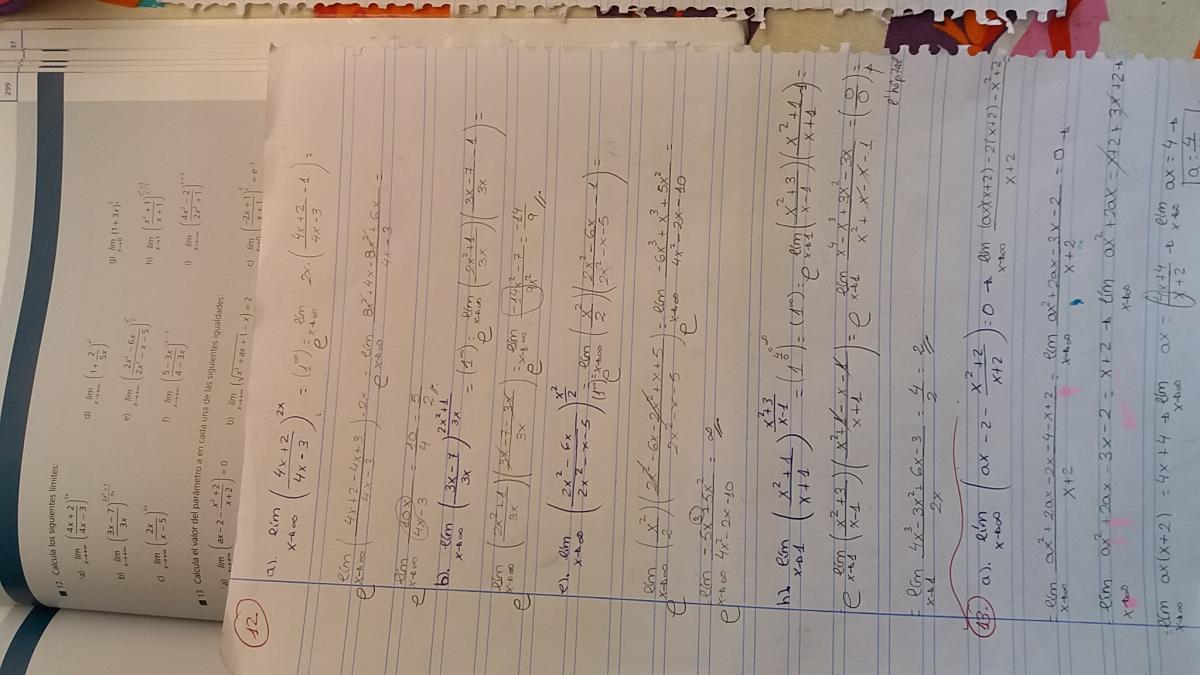 299
97
12. Calcula los siguientes límites:
a) lím x→+∞ ((4x+2)/(4x-3))^(2x)
b) lím x→+∞ ((3x-7)/3x)
c) lím x→+∞ (2x/(x-5))
d) lím x→+∞ (1 + 2/5x)
e) lím x→+∞ ((2x²-6x)/(2x²-x-5))
f) lím x→+∞ ((5-3x)/(4-3x))
g) lím x→0 (1+3x)
h) lím x→1 ((x²+1)/(x+1))
i) lím x→+∞ ((4x²-2)/(2x²+1))
13. Calcula el valor del parámetro a en cada una de las siguientes igualdades:
a) lím x→+∞ (ax - 2 - (x²+2)/(x+2)) = 0
b) lím x→+∞ (√(x²+ax+1) - x) = 2
c) lím ((-2x+1)/(x+1))
12.
a). lím x→∞ ((4x+2)/(4x-3))^(2x) = (1^∞) = e^ lím x→∞ 2x·((4x+2)/(4x-3) - 1) =
e^ lím x→∞ ((4x+2-4x+3)/(4x-3))·2x = e^ lím x→∞ (8x²+4x-8x²+6x)/(4x-3) =
e^ lím x→∞ 10x/(4x-3) = 10/4 = 5/2
b). lím x→∞ ((3x-7)/3x)^((2x²+1)/3x) = (1^∞) = e^ lím x→∞ ((-2x²+1)/3x)((3x-7)/3x - 1) =
e^ lím x→∞ ((2x²+1)/3x)((3x-7-3x)/3x) = e^ lím x→∞ (-14x²-7)/9x² = -14/9
e). lím x→∞ ((2x²-6x)/(2x²-x-5))^(x²/2) = (1^∞) = e^ lím x→∞ (x²/2)((2x²-6x)/(2x²-x-5) - 1) =
e^ lím x→∞ (x²/2)((2x²-6x-2x²+x+5)/(2x²-x-5)) = e^ lím x→∞ (-6x³+x³+5x²)/(4x²-2x-10) =
e^ lím x→∞ (-5x³+5x²)/(4x²-2x-10) = ∞
h). lím x→1 ((x²+1)/(x+1))^((x²+3)/(x-1)) = (1^∞) = e^ lím x→1 ((x²+3)/(x-1))((x²+1)/(x+1) - 1) =
e^ lím x→1 ((x²+2)/(x-1))((x²+1-x-1)/(x+1)) = e^ lím x→1 (x⁴-x³+3x²-3x)/(x²+x-x-1) = (0/0) → l'hôpital
= lím x→1 (4x³-3x²+6x-3)/2x = 4/2 = 2
13. a). lím x→∞ (ax - 2 - (x²+2)/(x+2)) = 0 → lím x→∞ (ax(x+2)-2(x+2)-x²+2)/(x+2) =
= lím x→∞ (ax²+2ax-2x-4-x+2)/(x+2) = lím x→∞ (ax²+2ax-3x-2)/(x+2) = 0 →
= lím x→∞ ax²+2ax-3x-2 = x+2 → lím x→∞ ax²+2ax = x+2+3x+2 →
= lím x→∞ ax(x+2) = 4x+4 → lím x→∞ ax = (4x+4)/(x+2) → lím x→∞ ax = 4 →
a = 4